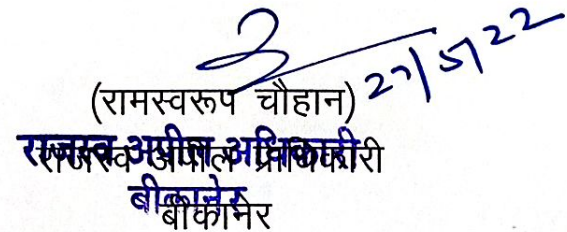 27/5/22
(रामस्वरूप चौहान)
राजस्व अपील अधिकारी
राजस्व अपील प्राधिकारी
बीकानेर
बीकानेर